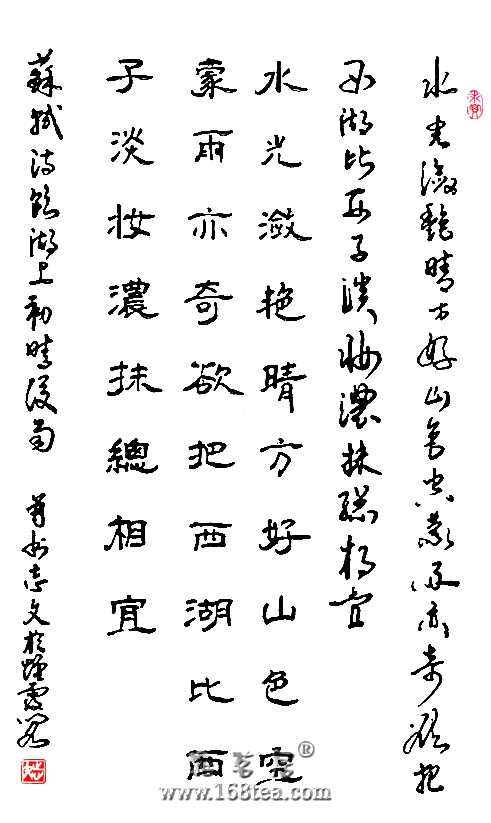 水光潋艷晴方好山色空蒙雨亦奇欲把
西湖比西子淡妝濃抹總相宜
水光潋艳晴方好山色空
蒙雨亦奇欲把西湖比西
子淡妆濃抹總相宜
蘇軾詩飲湖上初晴後雨 志文於
®
www.168tea.com